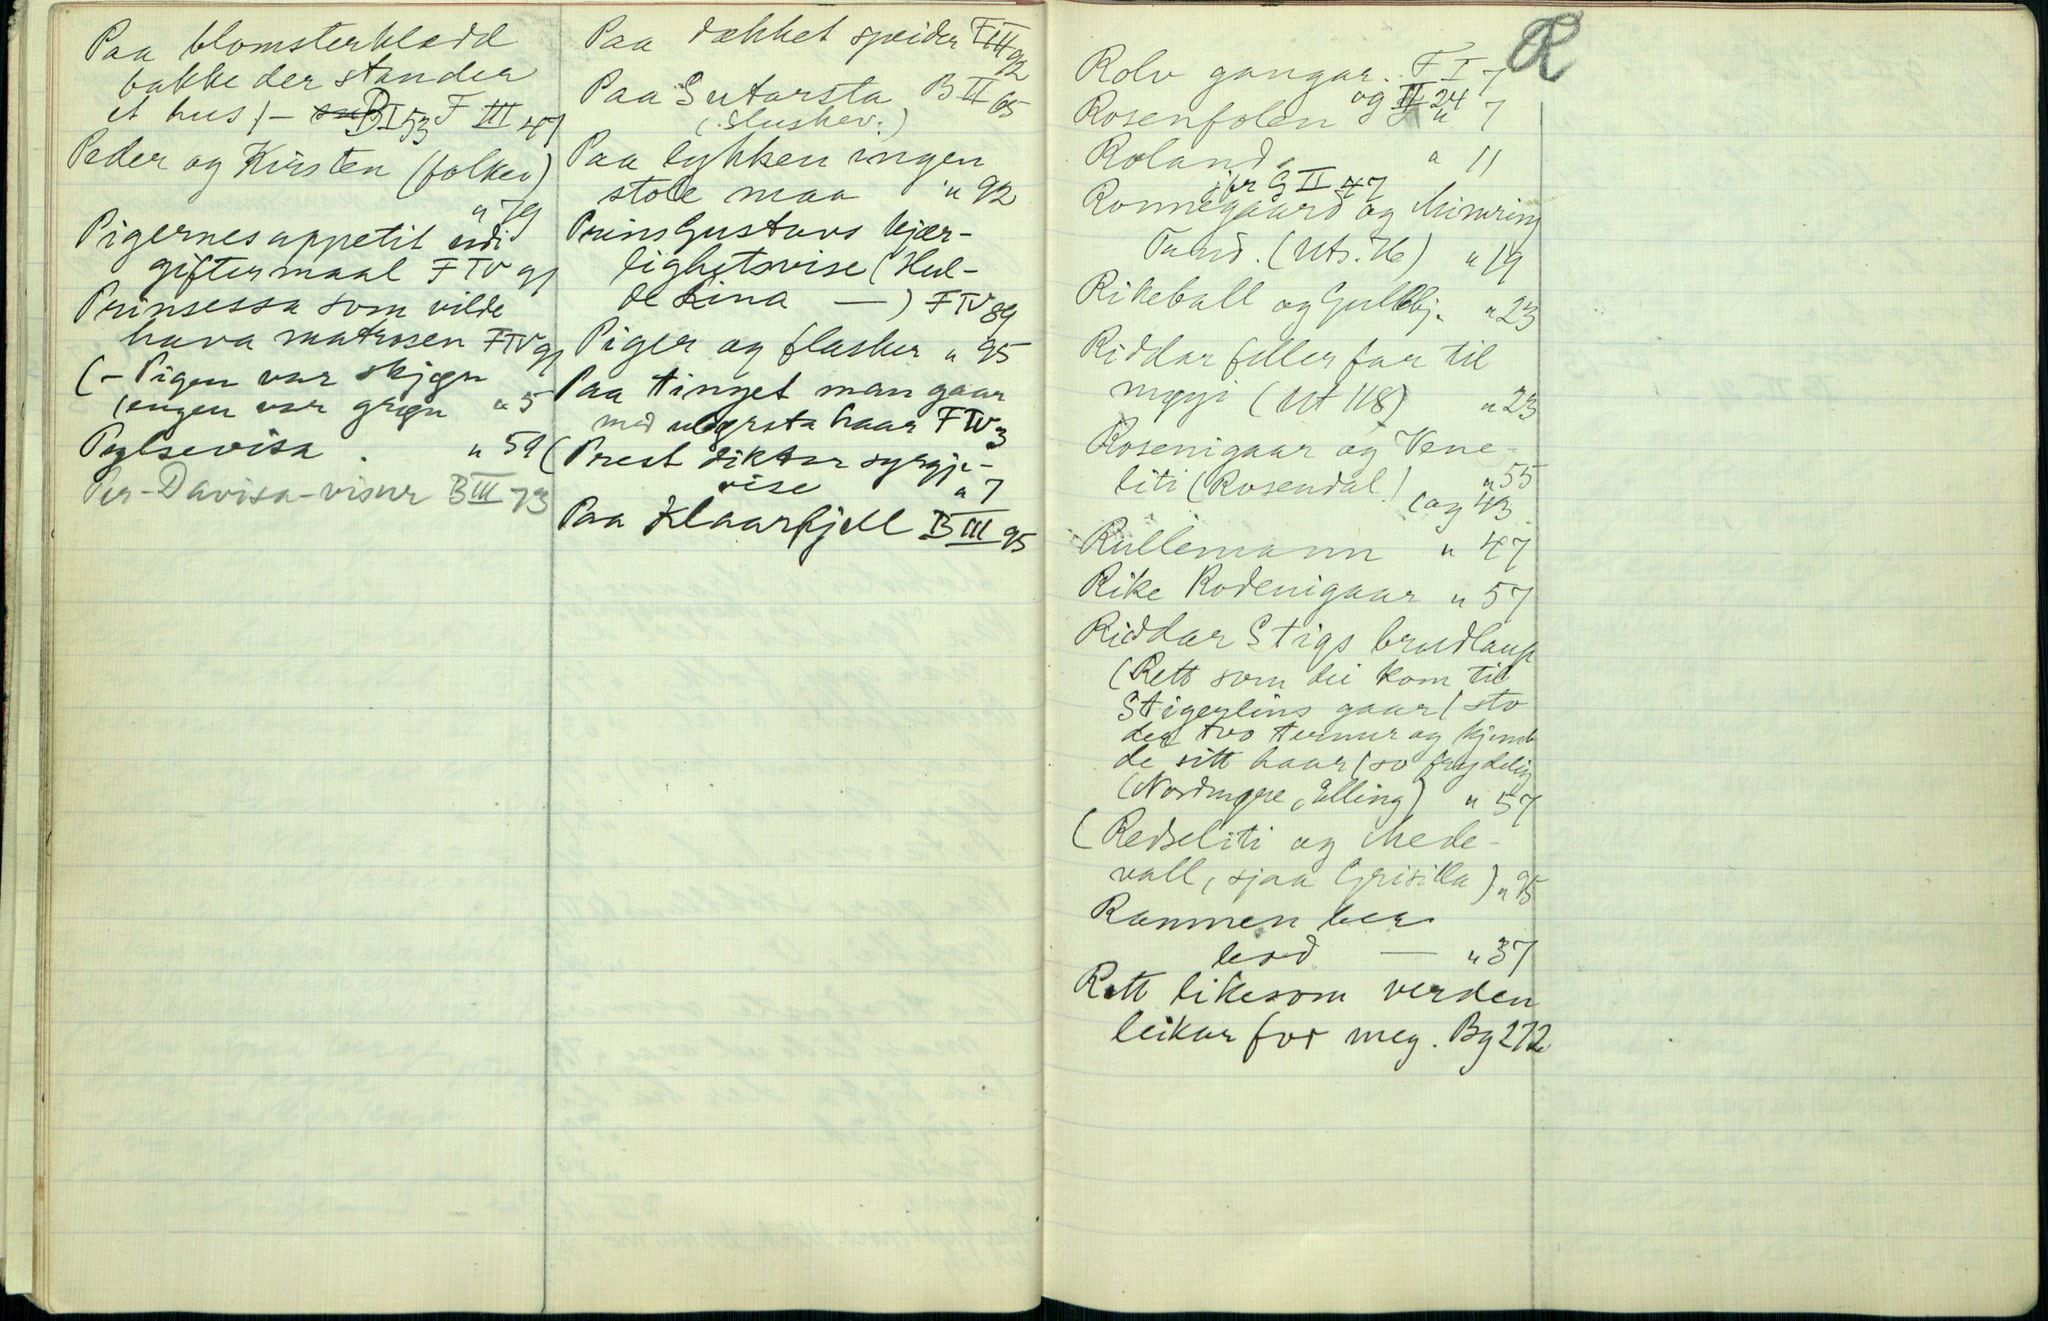 Paa blomsterkladd
bakke der stander
et hus / – B I 53 F III 47
Peder og Kirsten (folkev)
" 79
Pigernes appetit udi
giftermaal F IV 91
Prinsessa som vilde
hava matrosen F IV 91
(– Pigen var skjøn
/ engen var grøn " 5
Pølsevisa . " 59
Per-Davisa-visur B III 73
Paa dækket speider F III 92
Paa Sutarsta B II 65
(: Sluskev :)
Paa lykken ingen
stole maa " 92
Prins Gustavs kjær-
lighetsvise (Hul-
de Lina —) F IV 89
Piger og flasker " 95
Paa tinget man gaar
med ugreta haar F IV 3
(Prest diktar syrgje-
vise " 7
Paa Klaarfjell B III 95
R
Rolv gangar. F I 7
og II 24
Rosenfolen " 7
Roland " 11
jfr G II 47
Ronnegaard og Mimring
Tand. (Uts. 76) " 19
Rikeball og Gullbj. " 23
Riddar feller far til
møyi (Ut 118) " 23
Rosenigaar og Vene-
liti (Rosendal) " 55
(og 43
Rullemann " 47
Rike Rodenigaar " 57
Riddar Stigs brudlaup
(Rett som dei kom til
Stigerlins gaar / sto
der tvo ternur og kjemb
de sitt haar / so frydelig
(Nordmøre, Elling) " 57
(Redseliti og Mede-
vall, sjaa Grisilla) " 95
Rammen ber
lerd — " 37
Rett likesom verden
leikar for meg. Bg 272